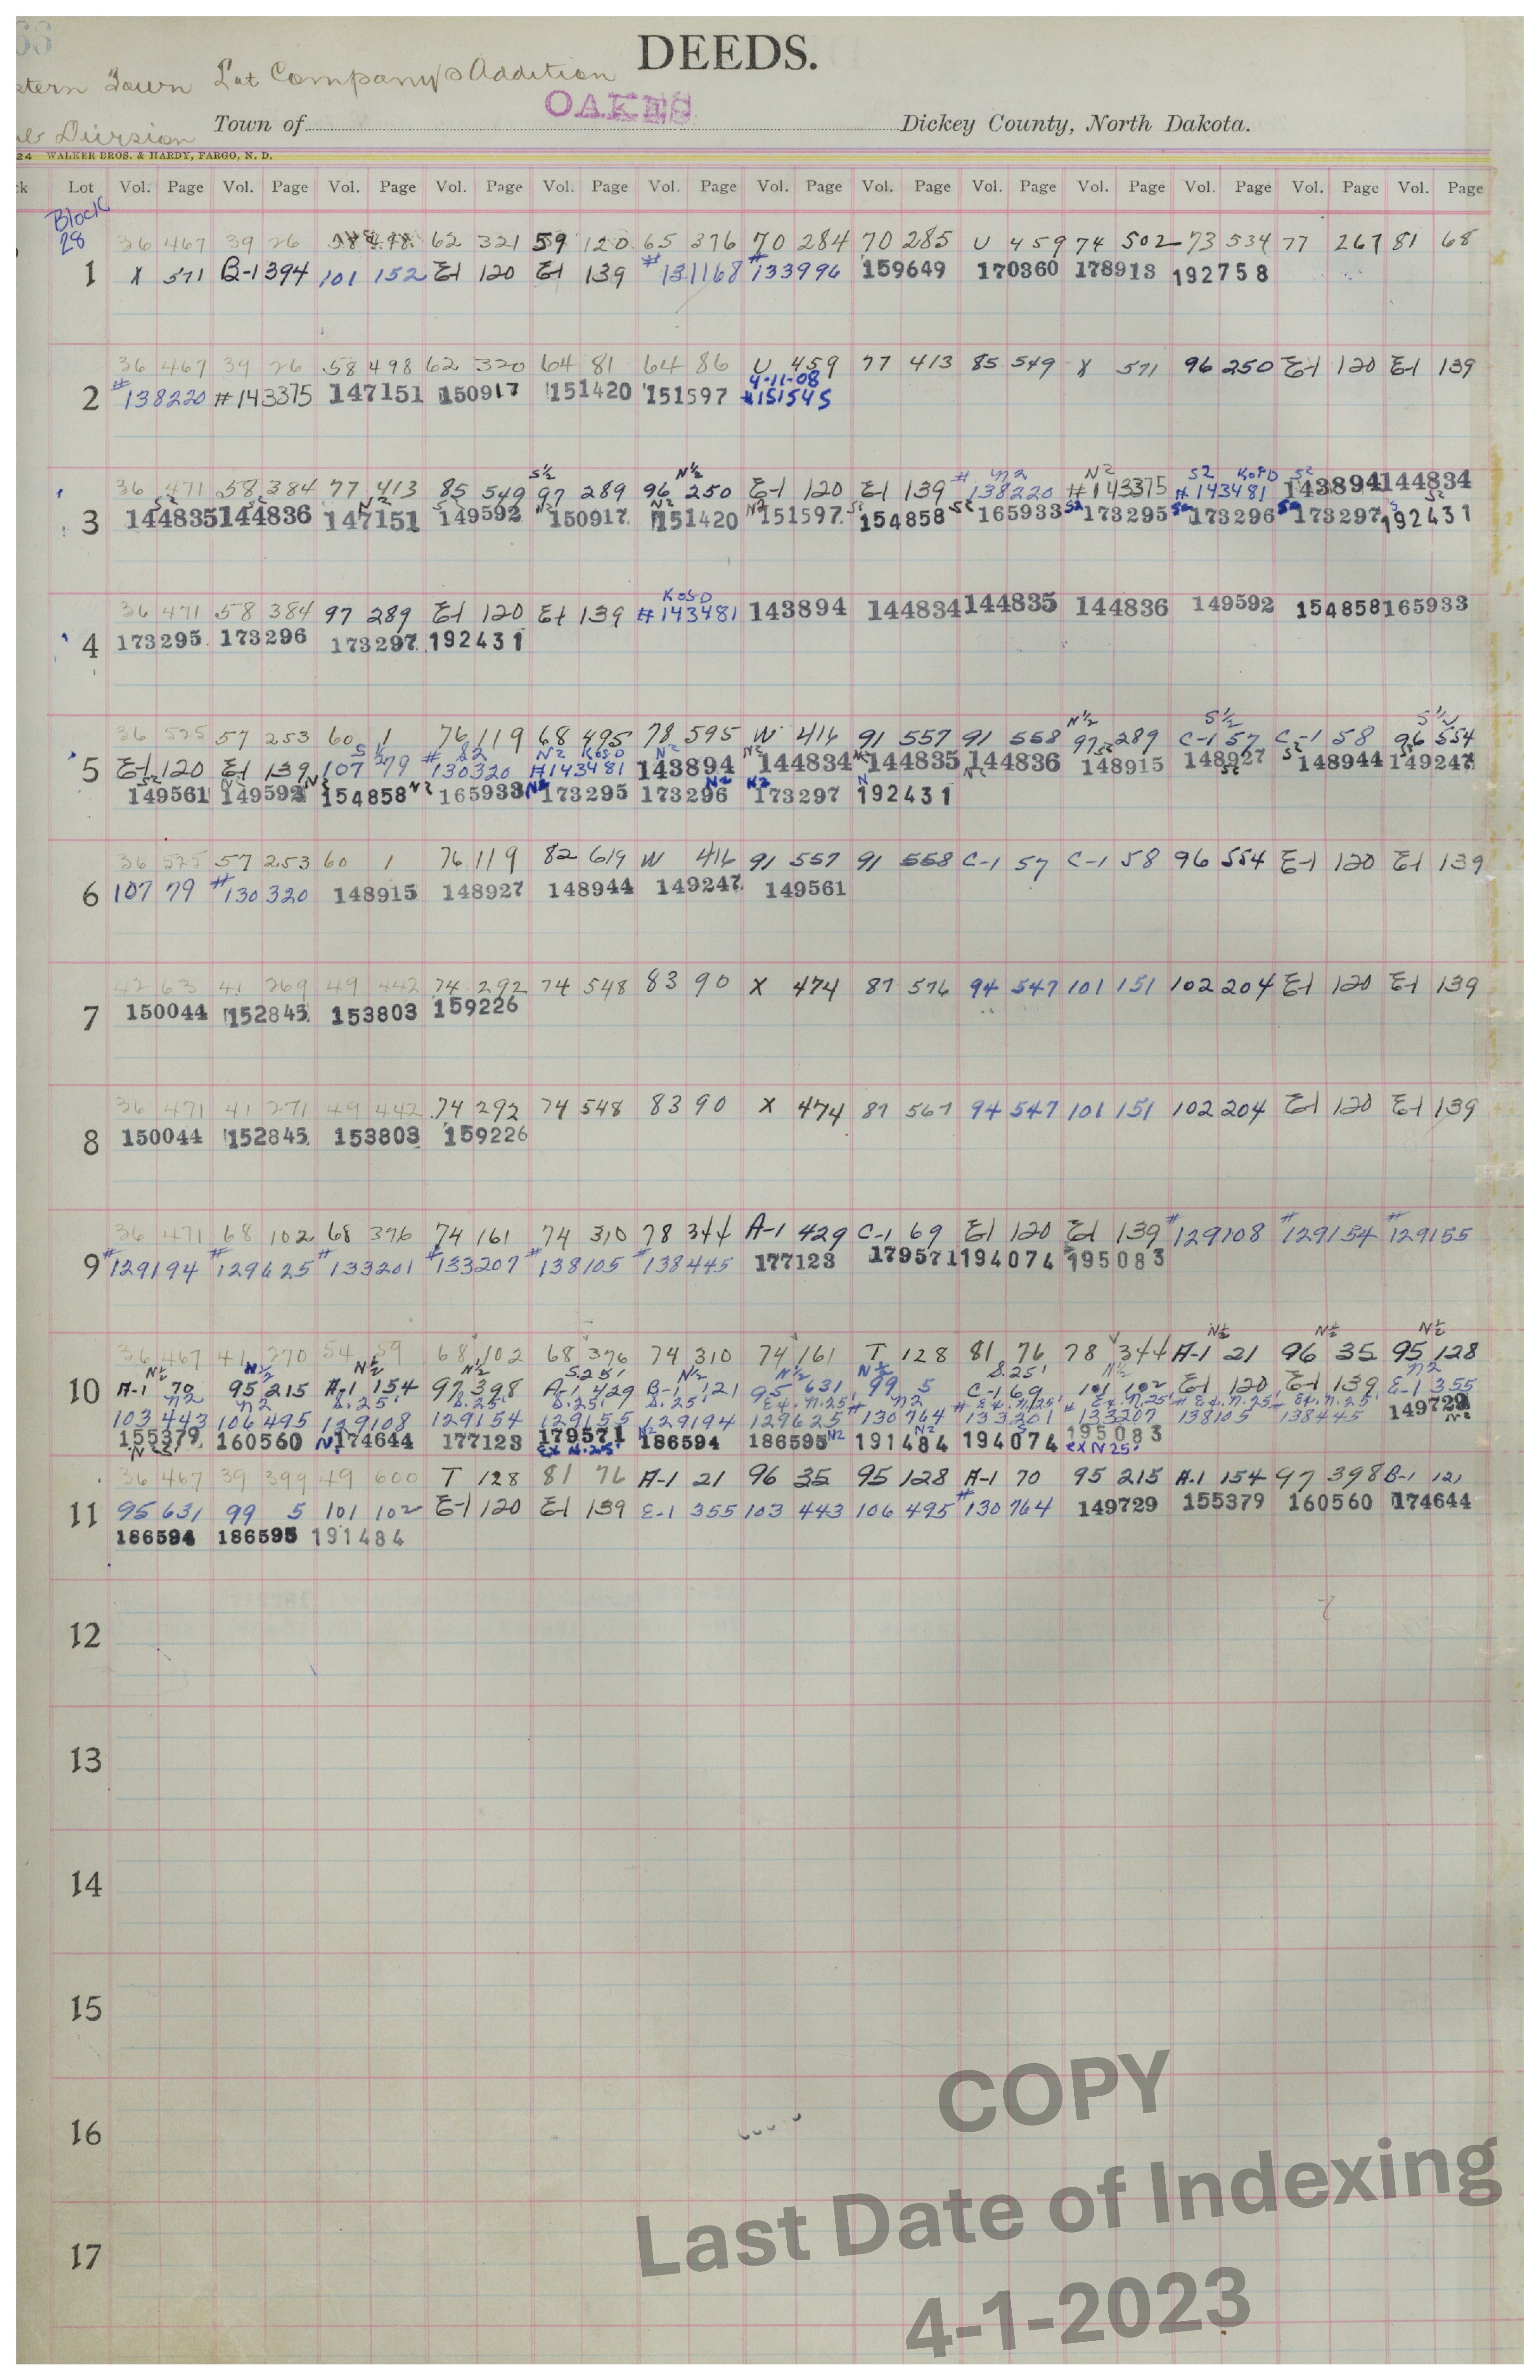 DEEDS.
stern Town Lot Company's Addition
OAKES
Division Town of Dickey County, North Dakota.
24 WALKER BROS. & HARDY, FARGO, N. D.
Lot Vol. Page Vol. Page Vol. Page Vol. Page Vol. Page Vol. Page Vol. Page Vol. Page Vol. Page Vol. Page Vol. Page Vol. Page Vol. Page
Block
28 36 467 39 26 58 498 62 321 59 120 65 376 70 284 70 285 U 459 74 502 73 534 77 267 81 68
1 X 571 B-1 394 101 152 E-1 120 E-1 139 #131168 #133996 159649 170360 178913 192758
36 467 39 26 58 498 62 320 64 81 64 86 U 459 77 413 85 549 X 571 96 250 E-1 120 E-1 139
4-11-08
2 #138220 #143375 147151 150917 151420 151597 #151545
S½ N½ N2 N2 S2 K of D S2
36 471 58 384 77 413 85 549 97 289 96 250 E-1 120 E-1 139 #138220 #143375 #143481 143894 144834
S2 S2 N2 S2 N2 N2 N2 S2 S2 S2 S2 S2 S2
3 144835 144836 147151 149592 150917 151420 151597 154858 165933 173295 173296 173297 192431
K of D
36 471 58 384 97 289 E-1 120 E-1 139 #143481 143894 144834 144835 144836 149592 154858 165933
4 173295 173296 173297 192431
N½ S½ S½
36 525 57 253 60 1 76 119 68 495 78 595 W 416 91 557 91 558 97 289 C-1 57 C-1 58 96 554
82 N2 K of D N2 N2 N2 S2 S2 S2
5 E-1 120 E-1 139 107 79 #130320 #143481 143894 144834 144835 144836 148915 148927 148944 149247
S2 N2 N2 N2 N2 N2 N2 N
149561 149592 154858 165933 173295 173296 173297 192431
36 525 57 253 60 1 76 119 82 619 W 416 91 557 91 558 C-1 57 C-1 58 96 554 E-1 120 E-1 139
6 107 79 #130320 148915 148927 148944 149247 149561
42 63 41 269 49 442 74 292 74 548 83 90 X 474 87 576 94 547 101 151 102 204 E-1 120 E-1 139
7 150044 152845 153803 159226
36 471 41 271 49 442 74 292 74 548 83 90 X 474 87 567 94 547 101 151 102 204 E-1 120 E-1 139
8 150044 152845 153803 159226
36 471 68 102 68 376 74 161 74 310 78 344 A-1 429 C-1 69 E-1 120 E-1 139 #129108 #129154 #129155
9 #129194 #129625 #133201 #133207 #138105 #138445 177123 179571 194074 195083
N½ N½ N½
36 467 41 270 54 59 68 102 68 376 74 310 74 161 T 128 81 76 78 344 A-1 21 96 35 95 128
N½ N½ N½ N½ S.25' N½ N½ N½ S.25' N½ N2
10 A-1 70 95 215 A-1 154 97 398 A-1 429 B-1 121 95 631 99 5 C-1 69 101 102 E-1 120 E-1 139 E-1 355
N2 N2 S.25' S.25' S.25' S.25' Ex. N.25' N2 Ex. N.25' Ex. N.25' Ex. N.25' Ex. N.25'
103 443 106 495 129108 129154 129155 129194 129625 #130764 #133201 #133207 #138105 #138445 149729
155379 160560 174644 177123 179571 186594 186595 191484 194074 195083
N2 Ex N.25' Ex N 25'
36 467 39 399 49 600 T 128 81 76 A-1 21 96 35 95 128 A-1 70 95 215 A-1 154 97 398 B-1 121
11 95 631 99 5 101 102 E-1 120 E-1 139 E-1 355 103 443 106 495 #130764 149729 155379 160560 174644
186594 186595 191484
12
13
14
15
16
17
COPY
Last Date of Indexing
4-1-2023